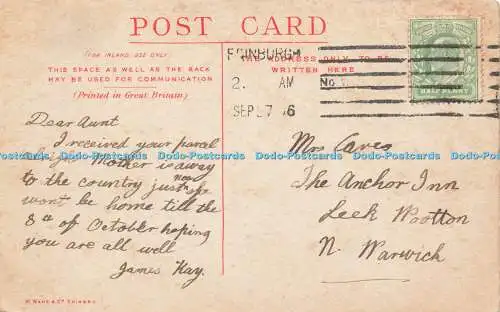 POST CARD
(FOR INLAND USE ONLY)
THIS SPACE AS WELL AS THE BACK
MAY BE USED FOR COMMUNICATION
(Printed in Great Britain)
THE ADDRESS ONLY TO BE
WRITTEN HERE
EDINBURGH
2. AM
SEP 27 6
HALFPENNY
Dear Aunt
I received your parcel
Mother is away
to the country just now she
wont be home till the
8th of October hoping
you are all well
James Hay.
Mrs Caves
The Anchor Inn
Leek Wootton
N. Warwick
Dodo-Postcards Dodo-Postcards Dodo-Postcards Dodo-Postcards Dodo-Postcards